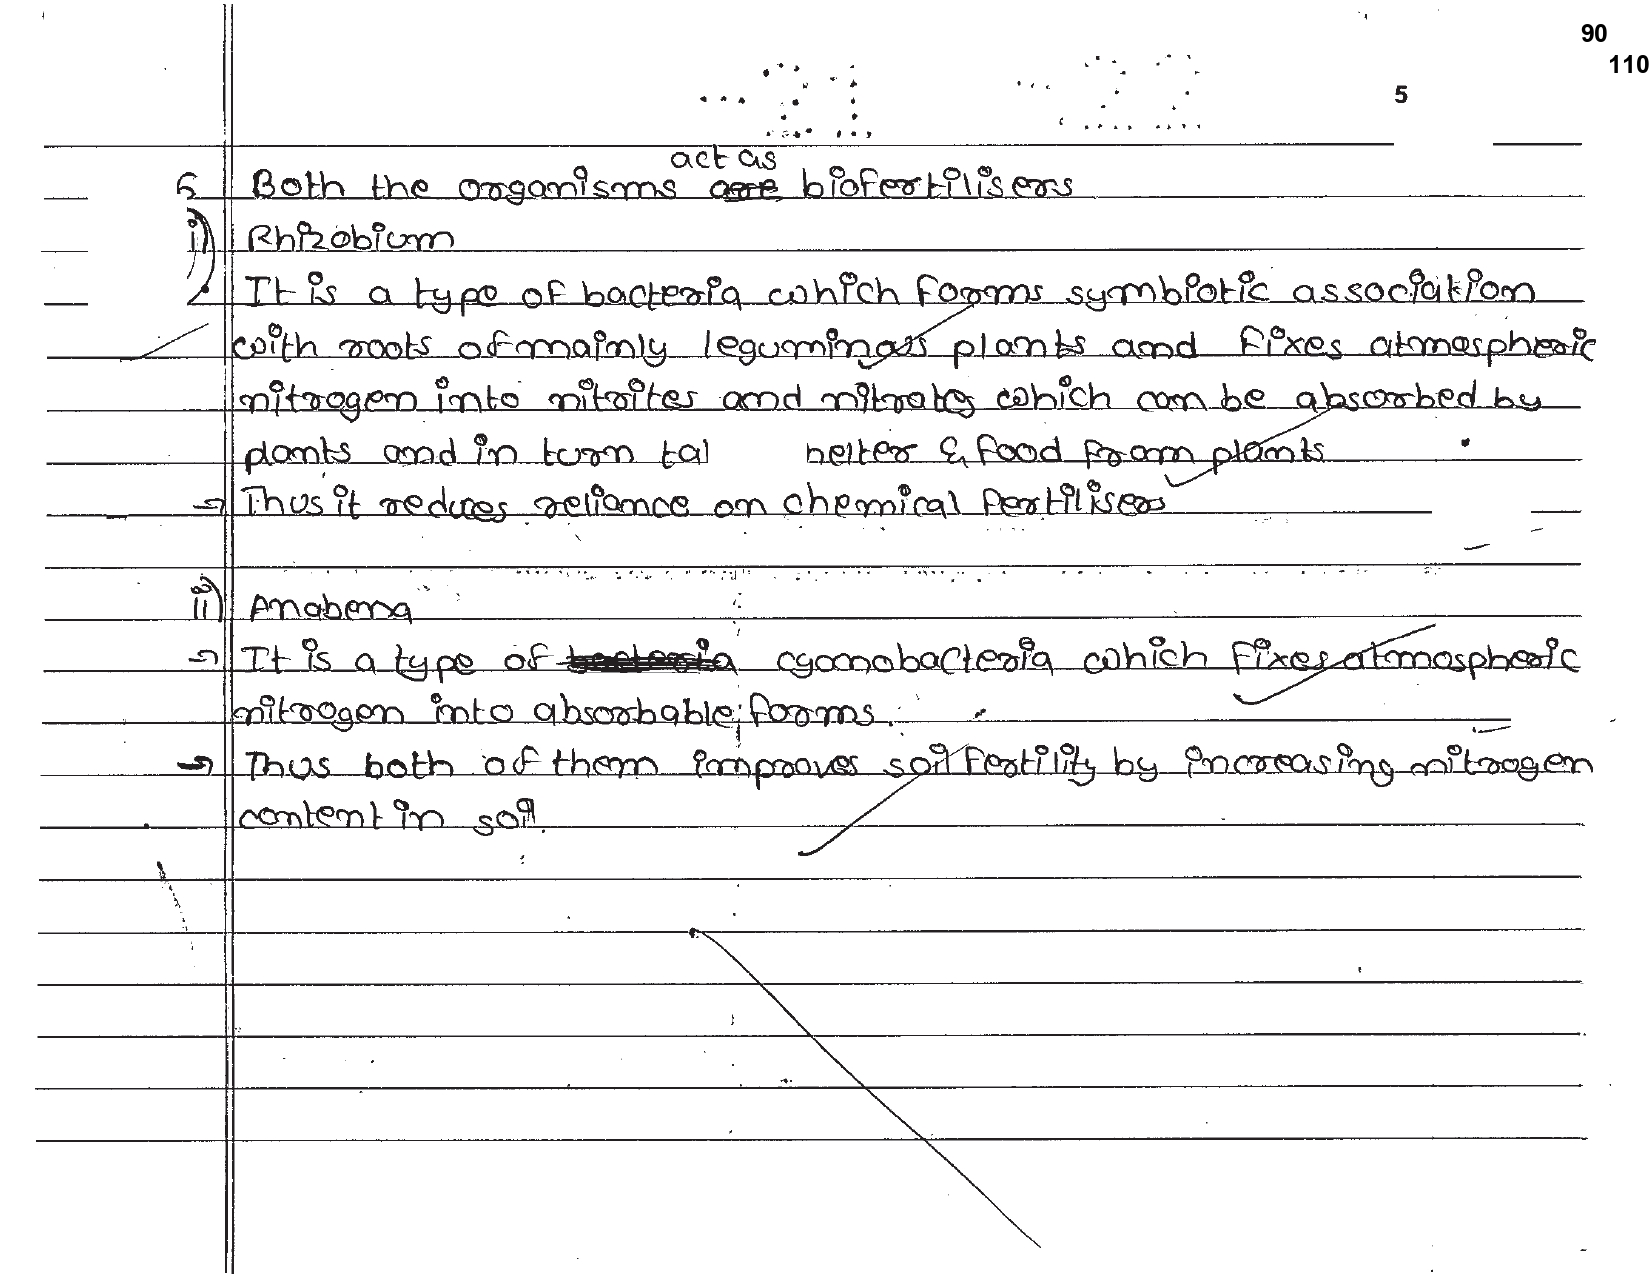 90
110
5
act as
5 Both the organisms are biofertilisers
i) Rhizobium
It is a type of bacteria which forms symbiotic association
with roots of mainly leguminass plants and fixes atmospheric
nitrogen into nitrites and nitrates which can be absorbed by
plants and in turn helter & food from plants
→ Thus it reduces reliance on chemical fertilisers
ii) Anabena
→ It is a type of bacteria cyanobacteria which fixes atmospheric
nitrogen into absorbable forms.
→ Thus both of them improves soil fertility by increasing nitrogen
content in soil.